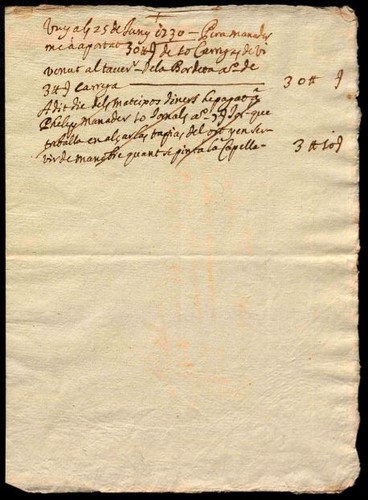 Vuy als 25 de Juny 1730 - Pera Manader
me à aportat 30 ₶ de 10 Carregas de vi
venut al taver. de la Bordeta a.º de
3 ₶ Carrega 30 ₶
A dit die dels mateixos diners he pagat a
Phelip Manader 10 Jornals a.º 7 que
traballa en alsar las tapias del ort y en ser-
vir de manobre quant se pinta la Capella- 3 ₶ 10